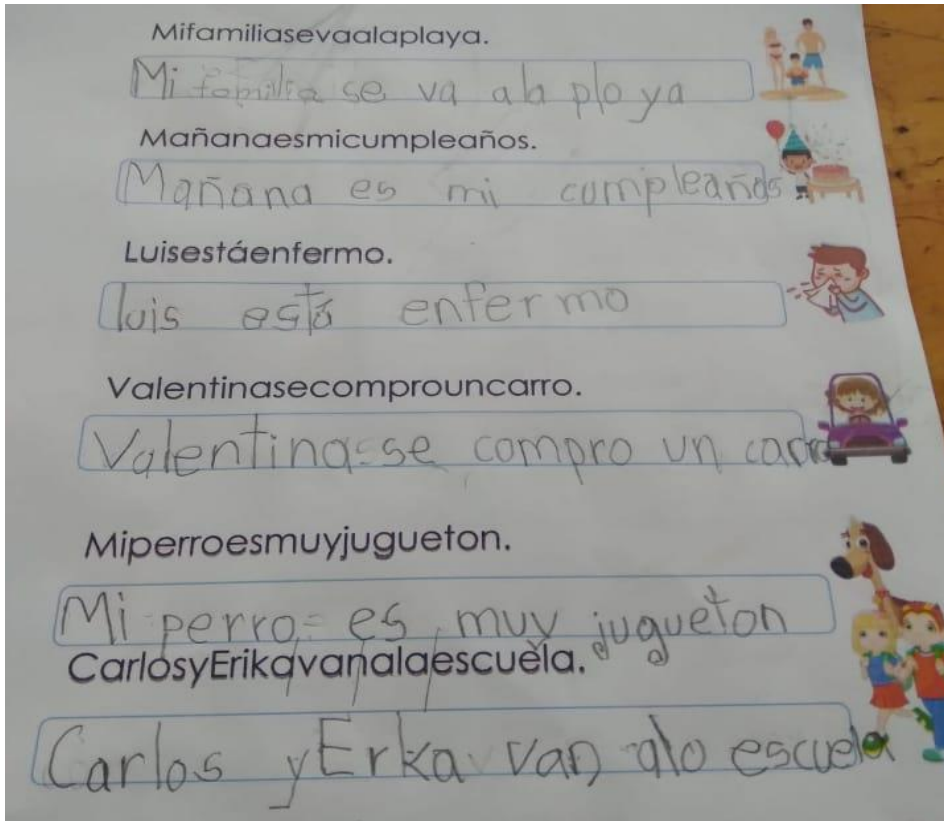 Mifamiliasevaalaplaya.
Mi familia se va ala ploya
Mañanaesmicumpleaños.
Mañana es mi cumpleaños
Luisestáenfermo.
luis está enfermo
Valentinasecomprouncarro.
Valentina se compro un carro
Miperroesmuyjugueton.
Mi perro es muy jugueton
CarlosyErikavanalaescuela.
Carlos y Erka van alo escuela